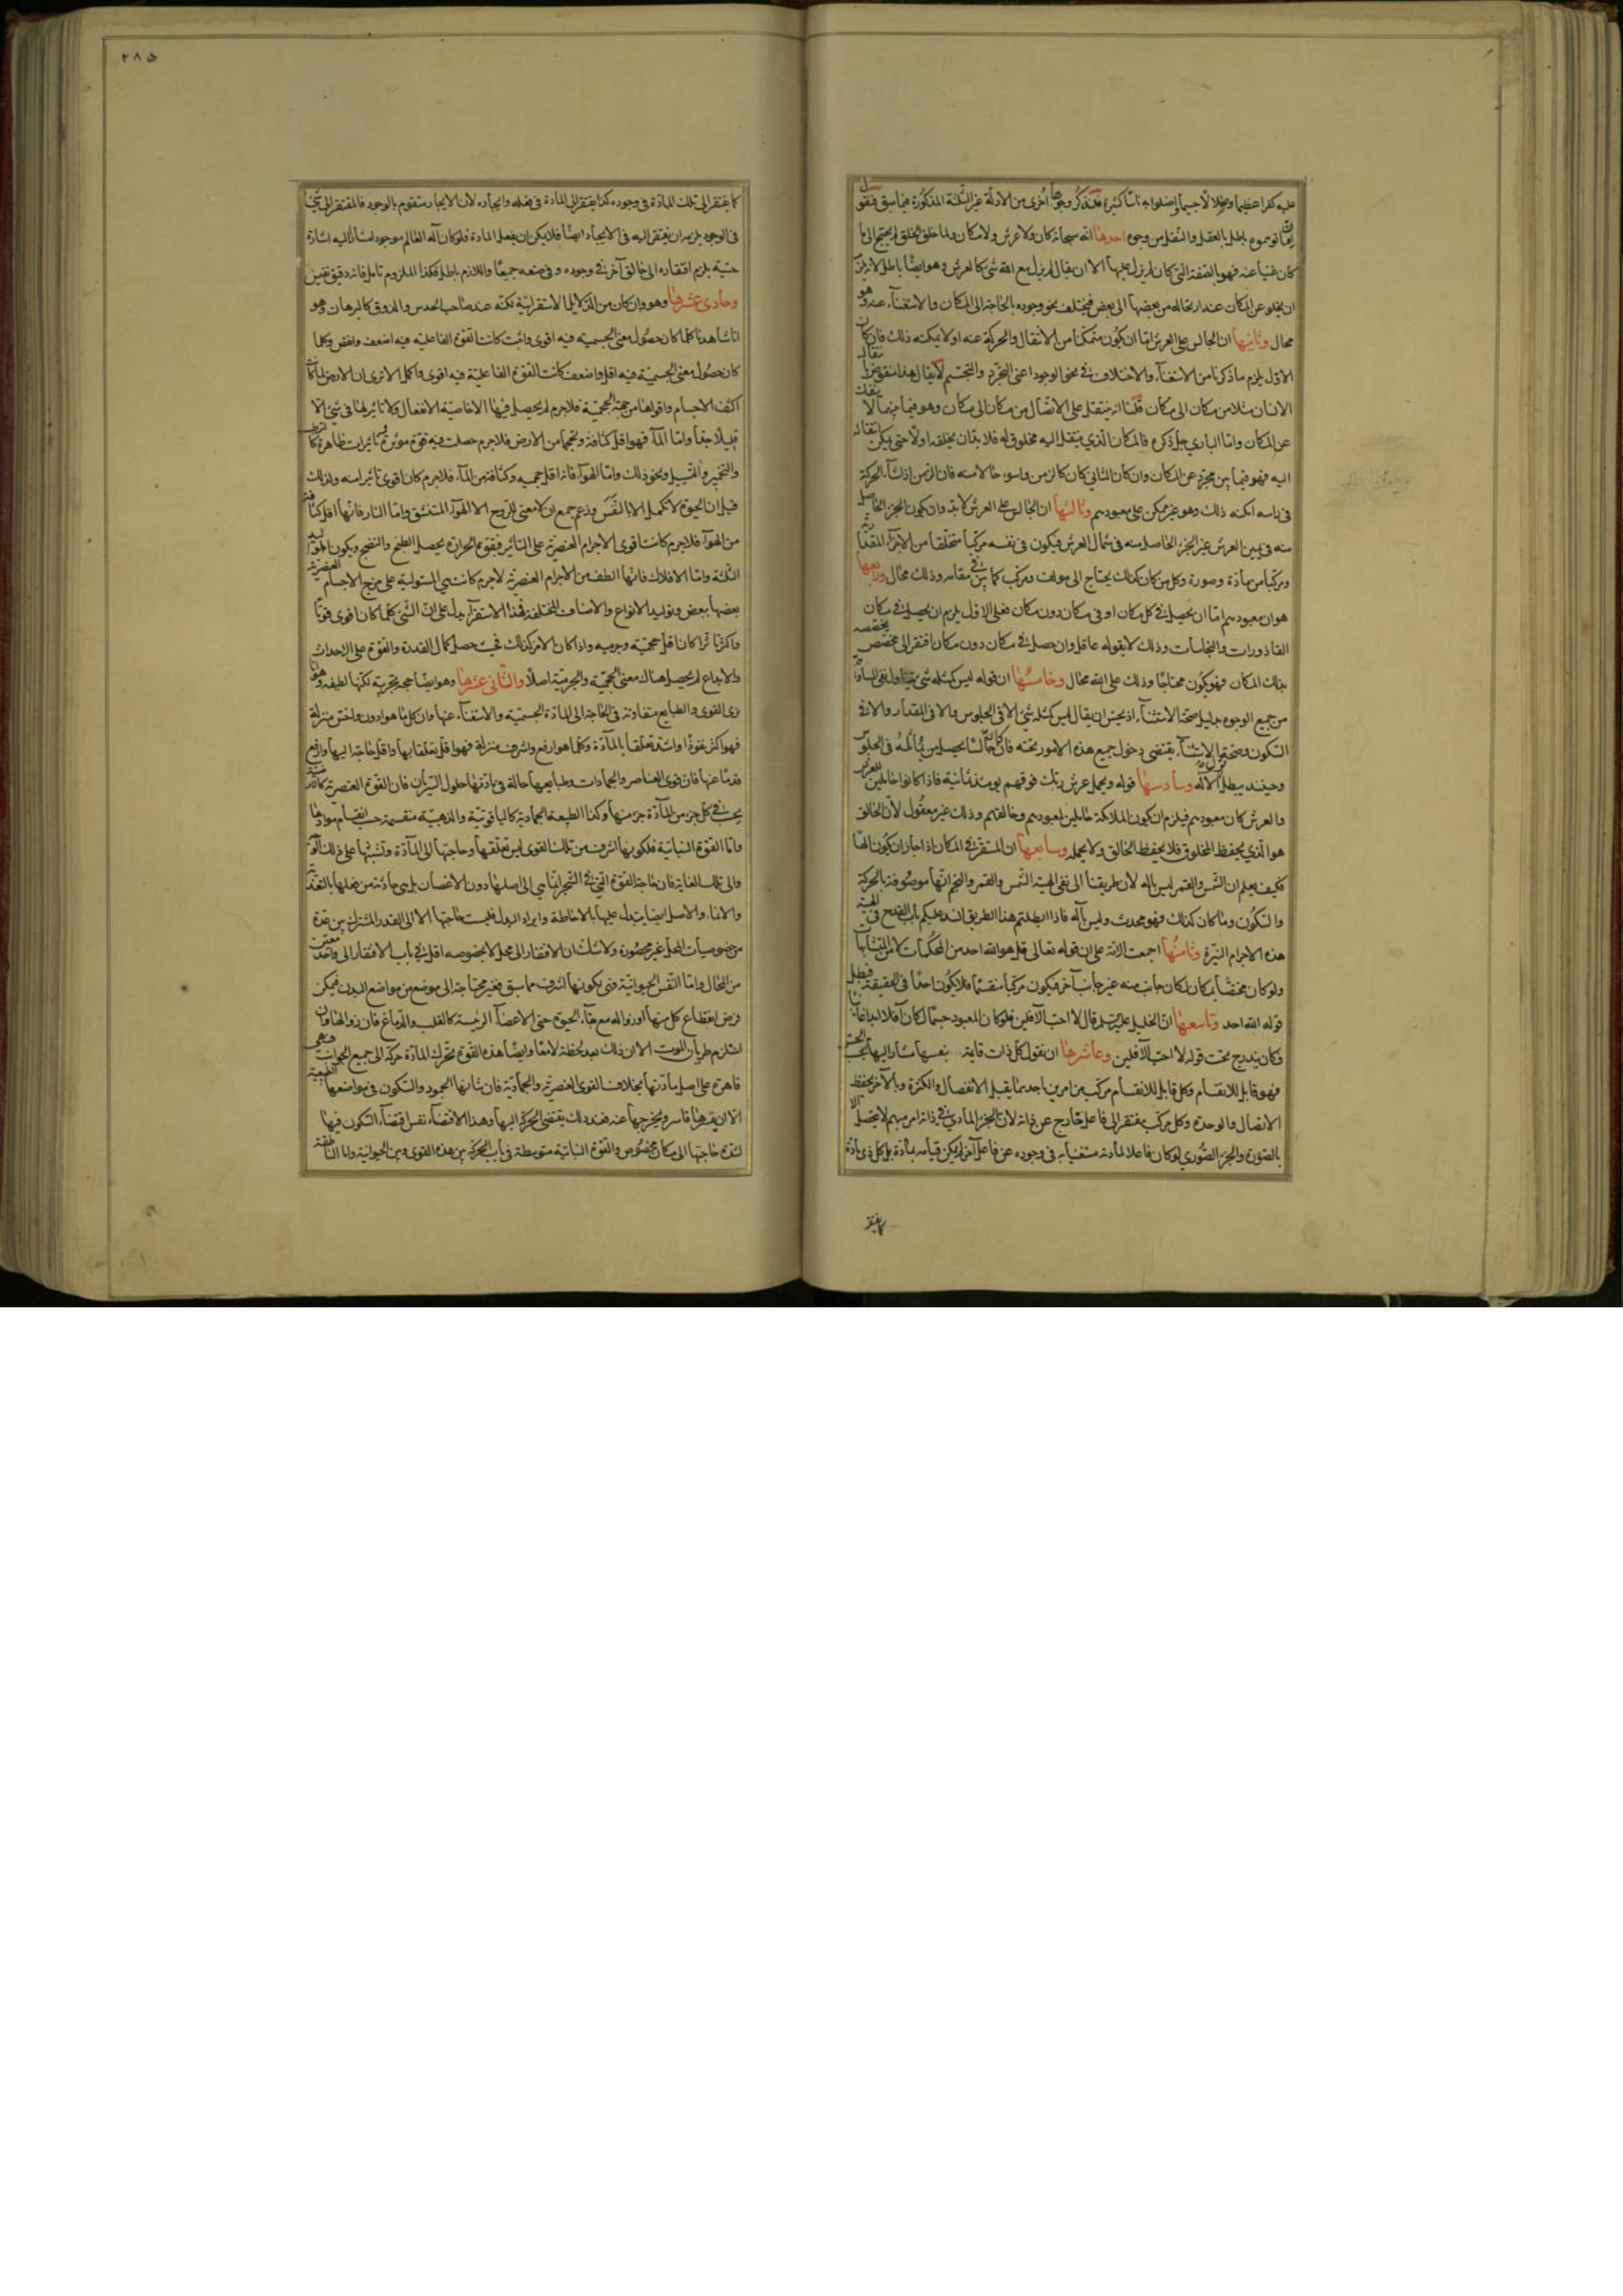 عليه كفرا عظيما وضلالا جسيما واضلوا به ناسا كثيرا فلنذكر وجوها أخرى من الادلة غير الثلثة المذكورة فيما سبق فنقول
ان ما توهموه باطل بالعقل والنقل من وجوه احدها انه سبحانه كان ولا عرش ولا مكان ولما خلق الخلق لم يحتج الى ما
كان غنيا عنه فهو بالصفة التي كان لم يزل عليها الا ان يقال لم يزل مع الله شئ كالعرش وهو ايضا باطل لانه يلزم
ان يخلو عن المكان عند ارتحاله من بعضها الى بعض فيختلف نحو وجوده بالحاجة الى المكان والاستغناء عنه وهو
محال وثانيها ان الجالس على العرش اما ان يكون متمكنا من الانتقال والحركة عنه او لا يمكنه ذلك فان كان
الاول يلزم ما ذكرنا من الاستغناء والاختلاف في نحو الوجود اعني التجرد والتجسم لا يقال هذا منقوض بانتقال
الانسان مثلا من مكان الى مكان قلنا انه ينتقل على الاتصال من مكان الى مكان وهو فيما بينهما لا ينفك
عن المكان واما الباري جل ذكره فالمكان الذي ينتقل اليه مخلوق له فلا بد ان يخلقه اولا حتى يمكن انتقاله
اليه فهو فيما بين مجرد عن المكان وان كان الثاني كان كالزمن واسوء حالا منه فان الزمن اذا شاء الحركة
في راسه امكنه ذلك وهو غير ممكن على معبودهم وثالثها ان الجالس على العرش لا بد وان يكون الجزء الحاصل
منه في يمين العرش غير الجزء الحاصل منه في شمال العرش فيكون في نفسه مركبا متخلقا من الاجزاء المقدارية
ومركبا من مادة وصورة وكل من كان كذلك يحتاج الى مولف ومركب كما بين في مقامه وذلك محال ورابعها
هو ان معبودهم اما ان يحصل في كل مكان او في مكان دون مكان فعلى الاول يلزم ان يحصل في مكان
القاذورات والنجاسات وذلك لا يقوله عاقل وان حصل في مكان دون مكان افتقر الى مخصص يخصصه
بذلك المكان فهو يكون محتاجا وذلك على الله محال وخامسها ان قوله ليس كمثله شئ يتناول نفى المساواة
من جميع الوجوه بدليل صحة الاستثناء اذ يحسن ان يقال ليس كمثله شئ الا في الجلوس والا في المقدار والا في
التكون وصحة الاستثناء يقتضي دخول جميع هذه الامور تحته فان كان جالسا يحصل من يماثله في الجلوس
وحينئذ يبطل الآية وسادسها قوله ويحمل عرش ربك فوقهم يومئذ ثمانية فاذا كانوا حاملين للعرش
والعرش كان معبودهم فيلزم ان يكون الملائكة حاملين لمعبودهم وخالقهم وذلك غير معقول لان الخالق
هو الذي يحفظ المخلوق فلا يحفظ الخالق ولا يحمله وسابعها ان المستقر في المكان اذا جاز ان يكون الها
فكيف يعلم ان الشمس والقمر ليس باله لان طريقنا الى نفى الهية الشمس والقمر والنجم انها موصوفة بالحركة
والتكون وما كان كذلك فهو محدث وليس باله فاذا ابطلتم هذا الطريق انسد عليكم باب القدح في الهية
هذه الاجرام النيرة وثامنها اجمعت الامة على ان قوله تعالى قل هو الله احد من المحكمات لا من المتشابهات
ولو كان مختصا بمكان لكان جانب منه غير جانب آخر فيكون مركبا منقسما فلا يكون احدا في الحقيقة فيبطل
قوله الله احد وتاسعها ان الخليل عليه السلم قال لا احب الآفلين فلو كان المعبود جسما لكان آفلا ابدا غائبا
فكان يندرج تحت قوله لا احب الآفلين وعاشرها ان نقول كل ذات قايمة بنفسها مشار اليها بحسب الحس
فهو قابل للانقسام وكل قابل للانقسام مركب من امرين باحدهما يقبل الانفصال والكثرة وبالآخر يحفظ
الاتصال والوحدة وكل مركب مفتقر الى فاعل خارج عن ذاته لان الجزء المادي في ذاته امر مبهم لا يتحصل الا
بالصورة والجزء الصوري لو كان فاعلا لمادته مستغنيا به في وجوده عن فاعل آخر لم يكن قيامه بمادة بل كل ذي مادة
كما يفتقر
٢٨٥
كما يفتقر الى تلك المادة في وجوده كذا يفتقر الى المادة في فعله وايجاده لان الايجاد متقوم بالوجود فالمفتقر الى شئ
في الوجود يلزمه ان يفتقر اليه في الايجاد ايضا فلا يمكن ان يفعل المادة فلو كان آله العالم موجودا مشارا اليه اشارة
حسية يلزم افتقاره الى خالق آخر في وجوده وفي صنعه جميعا واللازم باطل فكذا الملزوم تامل فانه دقيق نفيس
وحادي عشرها وهو وان كان من الدلايل الاستقرائية لكنه عند صاحب الحدس والذوق كالبرهان وهو
انا شاهدنا كلما كان حصول معنى الجسمية فيه اقوى واثبت كانت القوة الفاعلية فيه اضعف وانقص وكلما
كان حصول معنى الجسمية فيه اقل واضعف كانت القوة الفاعلية فيه اقوى واكمل الا ترى ان الارض لما كانت
اكثف الاجسام واقواها من جهة الحجمية فلا جرم لم يحصل فيها الا خاصية الانفعال ولا تاثير لها في شئ الا
قليلا جدا واما الماء فهو اقل كثافة وحجما من الارض فلا جرم حصلت فيه قوة موثرة وتاثيرات ظاهرة كالترطيب
والتخمير والتسييل ونحو ذلك واما الهواء فانه اقل حجمية وكثافة من الماء فلا جرم كان اقوى تاثيرا منه ولذلك
قيل ان الحيوة لا تكمل الا بالنفس وزعم جمع ان لا معنى للروح الا الهواء المتنشق واما النار فانها اقل كثافة
من الهواء فلا جرم كانت اقوى الاجرام العنصرية على التاثير فبقوة الحرارة يحصل الطبخ والنضج ويكون المواليد
الثلثة واما الافلاك فانها الطف من الاجرام العنصرية لا جرم كانت هي المستولية على مزج الاجسام العنصرية
بعضها ببعض وتوليد الانواع والاصناف المختلفة فهذا الاستقراء يدل على ان الشئ كلما كان اقوى قوة
واكثر تاثرا كان اقل حجمية وجرمية واذا كان الامر كذلك فحيث حصل كمال القدرة والقوة على الاحداث
والابداع لم يحصل هناك معنى الحجمية والجرمية اصلا والثاني عشرها وهو ايضا حجة تجربية لكنها لطيفة وهو انا
نرى القوى والطبايع متفاوتة في الحاجة الى المادة الجسمية والاستغناء عنها وان كل ما هو ادون واخس منزلة
فهو اكثر نفوذا واشد تعلقا بالمادة وكلما هو ارفع واشرف منزلة فهو اقل تعلقا بها واقل حاجة اليها وارفع
قدما عنها فان قوى العناصر والجمادات وطبايعها حالة في مادتها حلول السريان فان القوة العنصرية كالنارية
يحسب في كل جزء من المادة جزء منها وكذا الطبيعة الجمادية كالياقوتية والذهبية منقسمة حسب انقسام موادها
واما القوة النباتية فلكونها اشرف من تلك القوى ليس تعلقها وحاجتها الى المادة وتشبثها على ذلك
والى تلك الغاية فان حاجة القوة التي في الشجر انما هي الى اصلها دون الاغصان بل هي حادثة من فعلها بالتغذية
والانماء والاصل ايضا يتبدل عليها بالاحاطة وايراد البدل فليست حاجتها الا الى القدر المشترك بين عدة
من خصوصيات المحل غير محصورة ولا شك ان الافتقار الى محل لا بخصوصه اقل في باب الافتقار الى واحد معين
من المحال واما النفس الحيوانية فهي لكونها اشرف مما سبق فغير محتاجة الى موضع من مواضع البدن فيمكن
فرض انقطاع كل منها او زواله مع بقاء الحيوة حتى الاعضاء الرئيسة كالقلب والدماغ فان زوالها وان
استلزم طريان الموت الا ان ذلك بعد لحظة لا معا وايضا هذه القوة تحرك المادة حركة الى جميع الجوانب فهي
قاهرة على اصل مادتها بخلاف القوى العنصرية والجمادية فان شانها الجمود والسكون في مواضعها الطبيعية
الا ان يقسرها قاسر ويخرجها عنه فعند ذلك يقتضي الحركة اليها وهذا الاقتضاء نفس اقتضاء السكون فيها
لشدة حاجتها الى مكان مخصوص والقوة النباتية متوسطة في باب الحركة بين هذه القوى وبين الحيوانية واما الناطقة